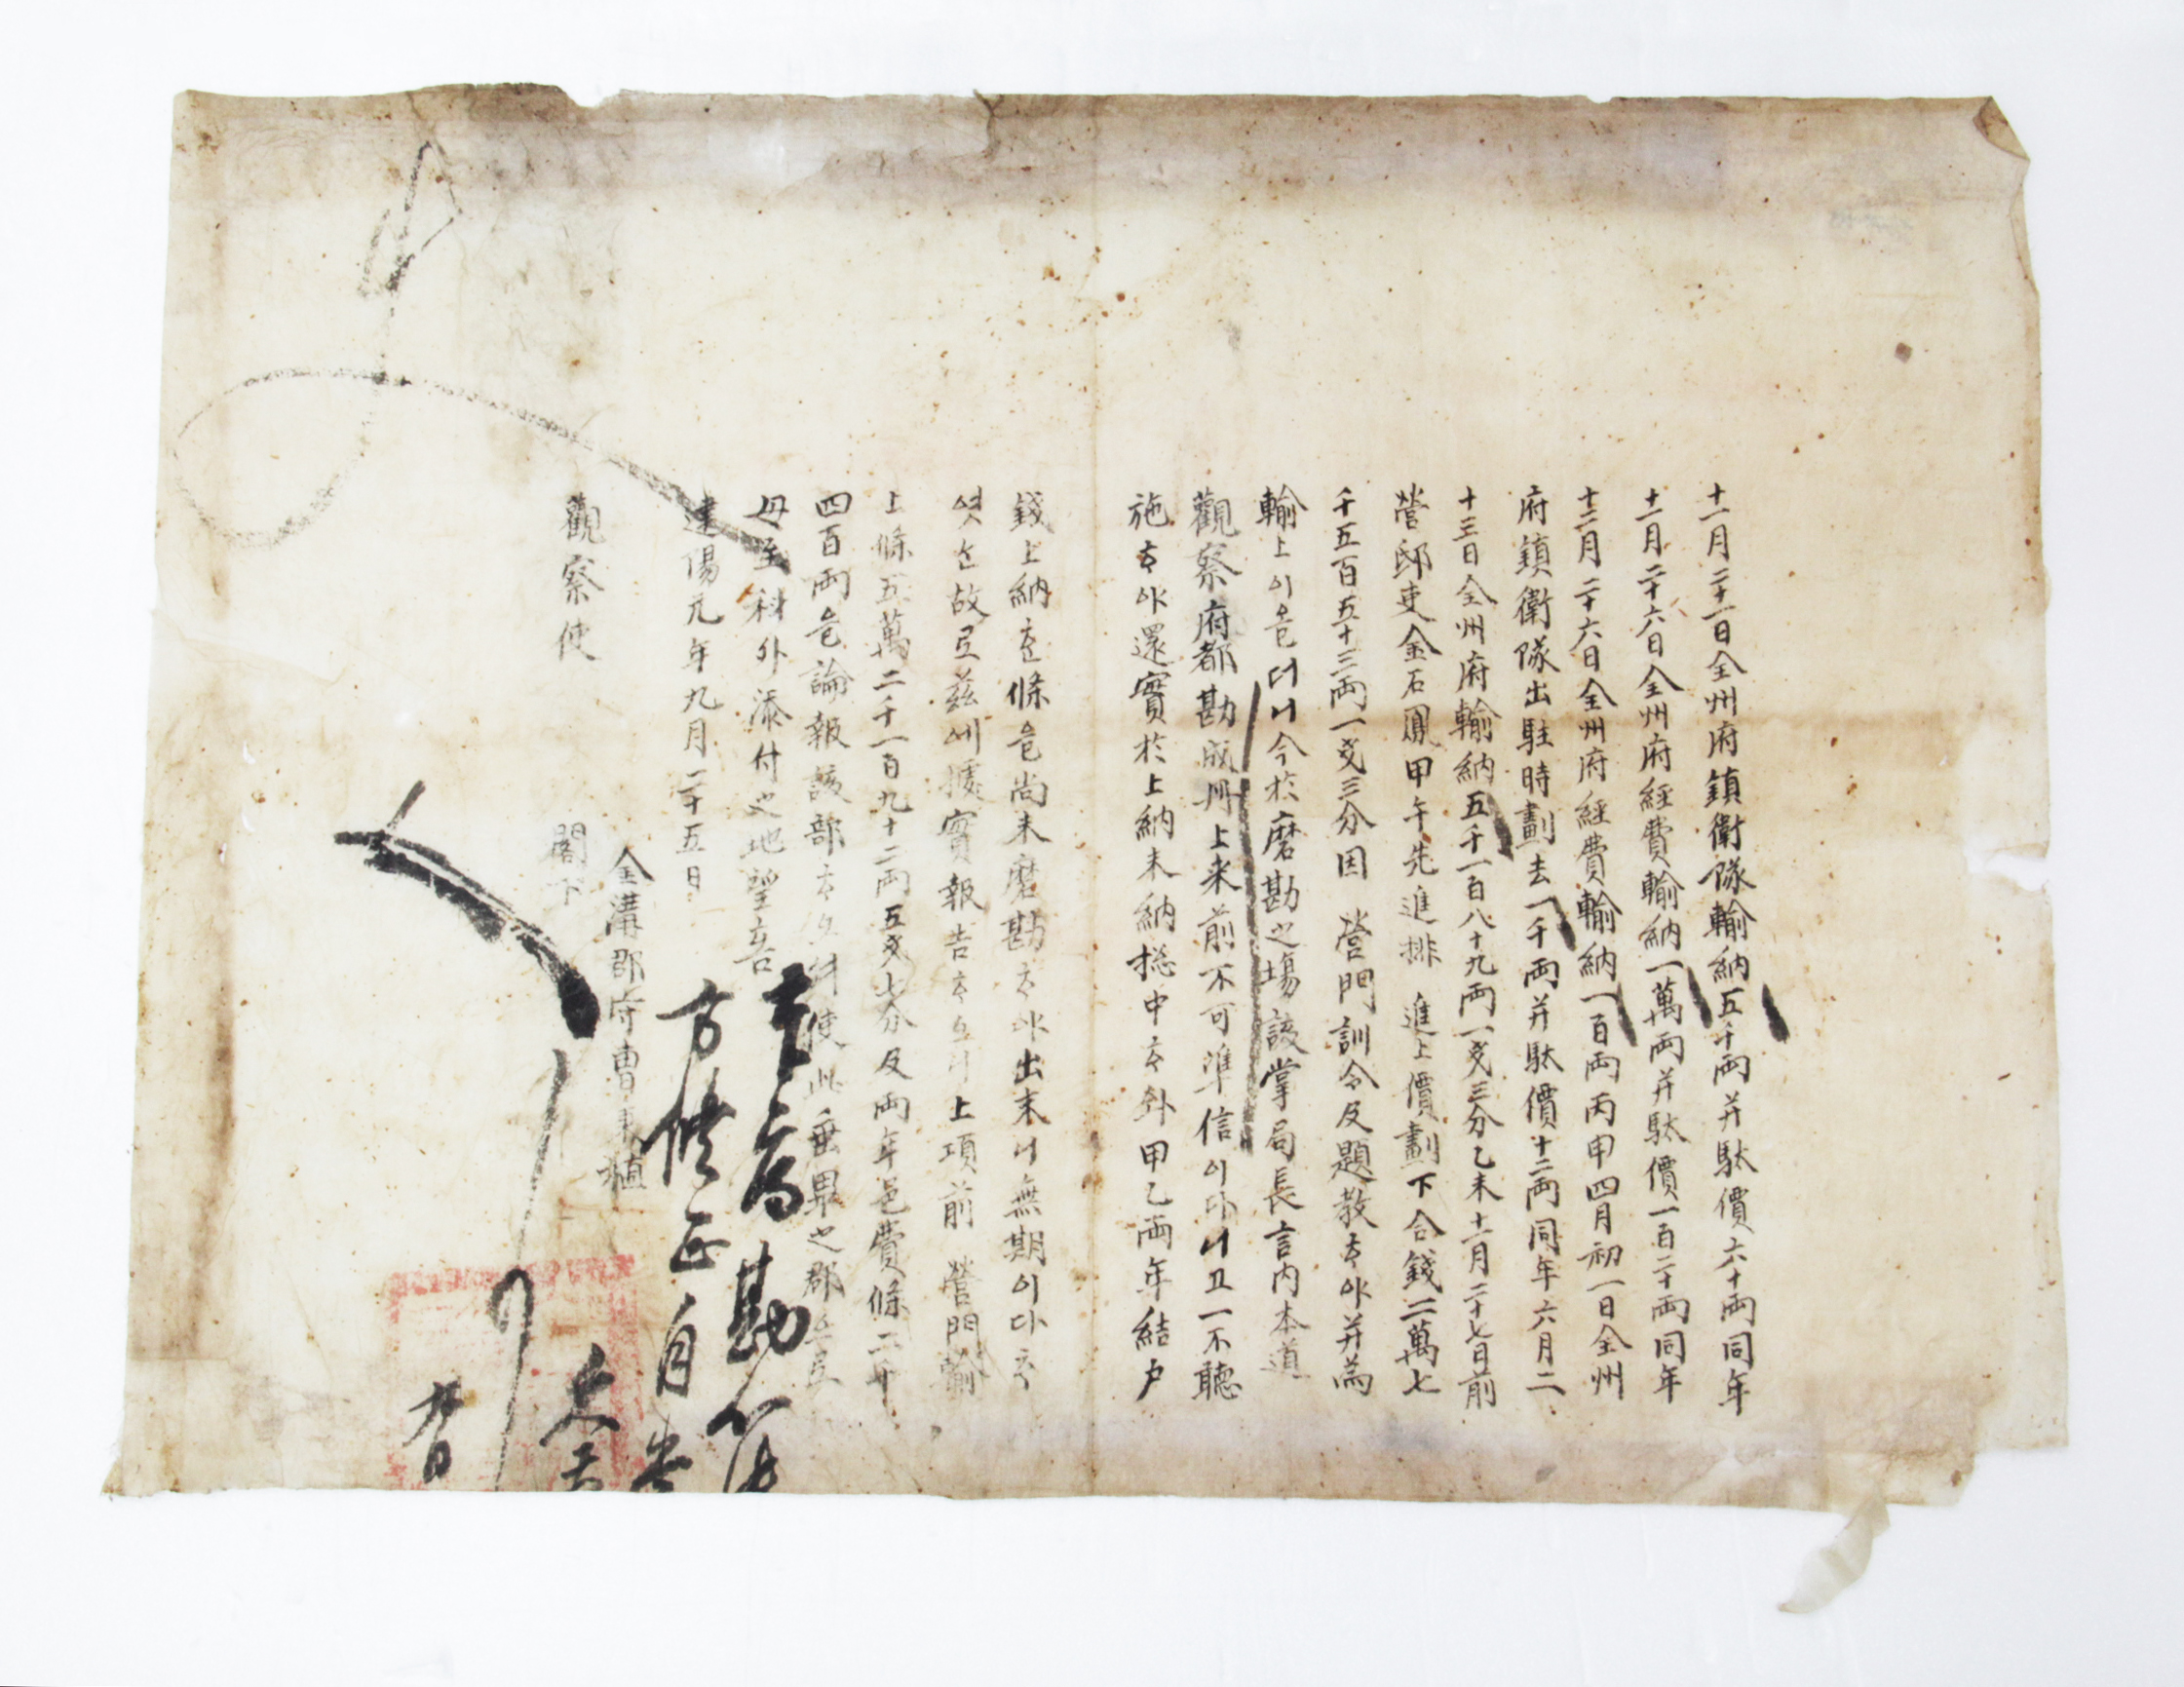 十一月二十一日全州府鎮衛隊輸納五千兩并駄價六十兩同年
十一月二十六日全州府經費輸納一萬兩并駄價一百二十兩同年
十二月二十六日全州府經費輸納一百兩丙申四月初一日全州
府鎮衛隊出駐時劃去一千兩并駄價十二兩同年六月二
十三日全州府輸納五千一百八十九兩一戔三分乙未十一月二十七日前
營邸吏金石鳳甲午先進排 進上價劃下合錢二萬七
千五百五十三兩一戔三分因 營門訓令及題教ᄒᆞ야并為
輸上이은더니今於磨勘之場該掌局長言內本道
觀察府都勘成冊上来前不可準信이다니고一不聽
施ᄒᆞ야還實於上納未納摠中ᄒᆞ와甲乙兩年結户
錢上納ᄒᆞᆫ條은尚未磨勘ᄒᆞ야出末니無期이다ᄒᆞ
엿ᄉᆞᆫ故로茲에據實報告ᄒᆞ오니上項前 營門輸
上條五萬二千一百九十二兩五戔七分及兩年邑費條二千
四百兩은論報該部ᄒᆞ오셔使此垂畢之郡으로
毋至科外添付之地望喜
建陽元年九月二十五日
金溝郡守曹東植
觀察使 閣下